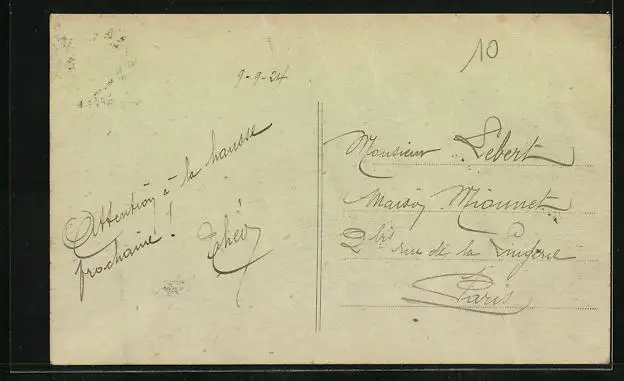 10
9-9-24
Attention à la hausse
prochaine !
Théo
Monsieur Lebert
Maison Mionnet
2 bis rue de la Lingerie
Paris